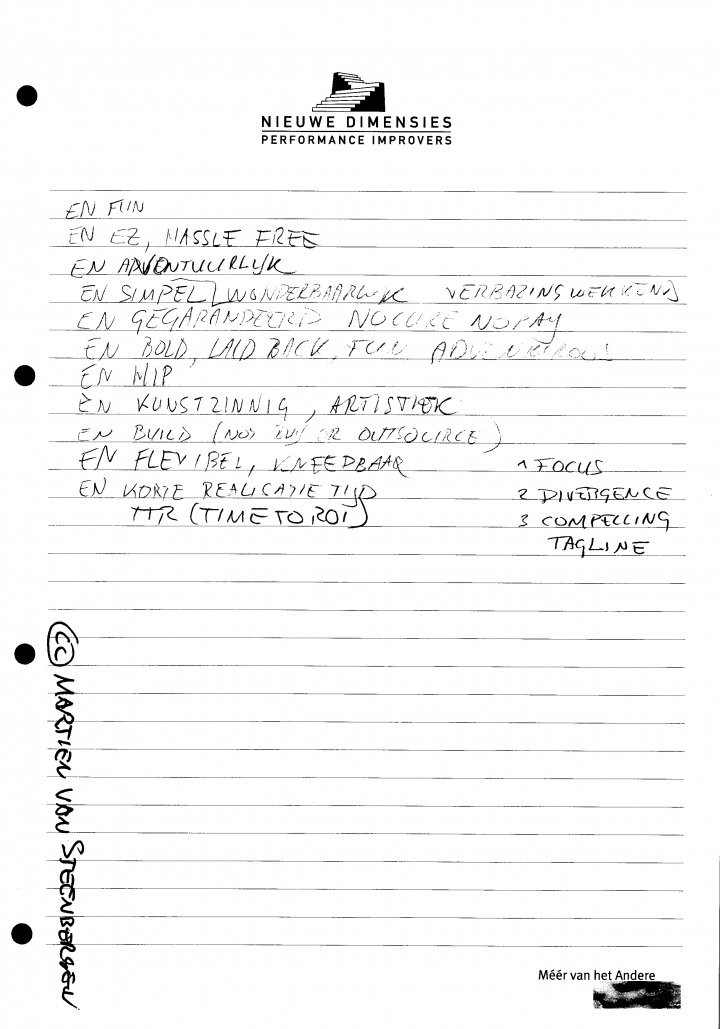 NIEUWE DIMENSIES
PERFORMANCE IMPROVERS
EN FUN
EN EZ, HASSLE FREE
EN ADVENTUURLIJK
EN SIMPEL WONDERBAARLIJK VERBAZINGSWEKKEND
EN GEGARANDEERD NO CURE NO PAY
EN BOLD, LAID BACK, FUN, ADVENTEROUS
EN HIP
EN KUNSTZINNIG, ARTISTIEK
EN BUILD (NOT BUY OR OUTSOURCE)
EN FLEXIBEL, KNEEDBAAR
EN KORTE REALICATIE TIJD
TTR (TIME TO ROI)
1 FOCUS
2 DIVERGENCE
3 COMPELLING
TAGLINE
(CC) MARTIEN VAN STEENBERGEN
Méér van het Andere